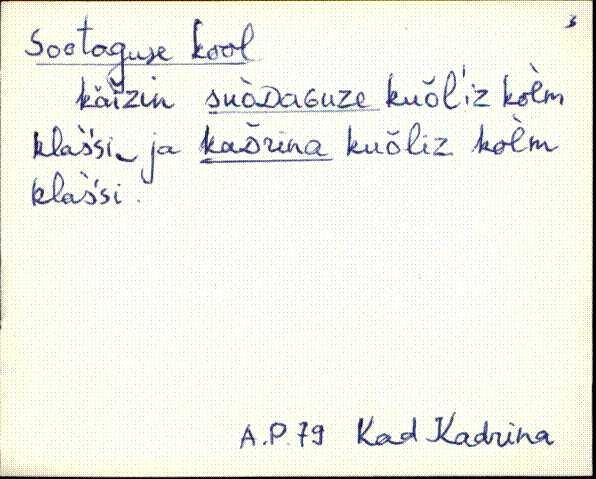 3
Sootaguse kool
käĭzin suòDaGuze kuŏĺiz kòlm
klaśsi ja kaŏrina kuŏliz kòlm
klaśsi.
A.P.79 Kad Kadrina